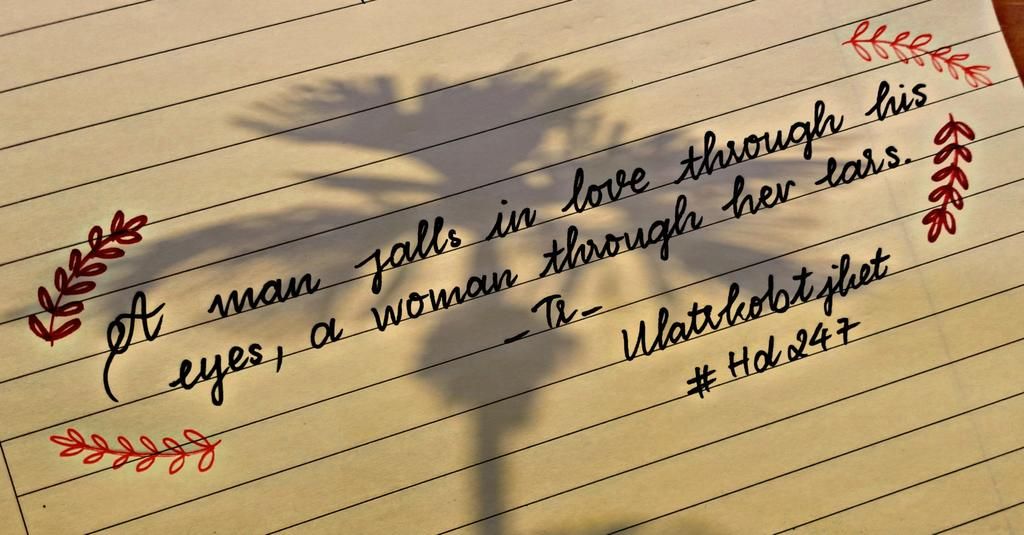 A man falls in love through his
eyes, a woman through her ears.
#Hd247